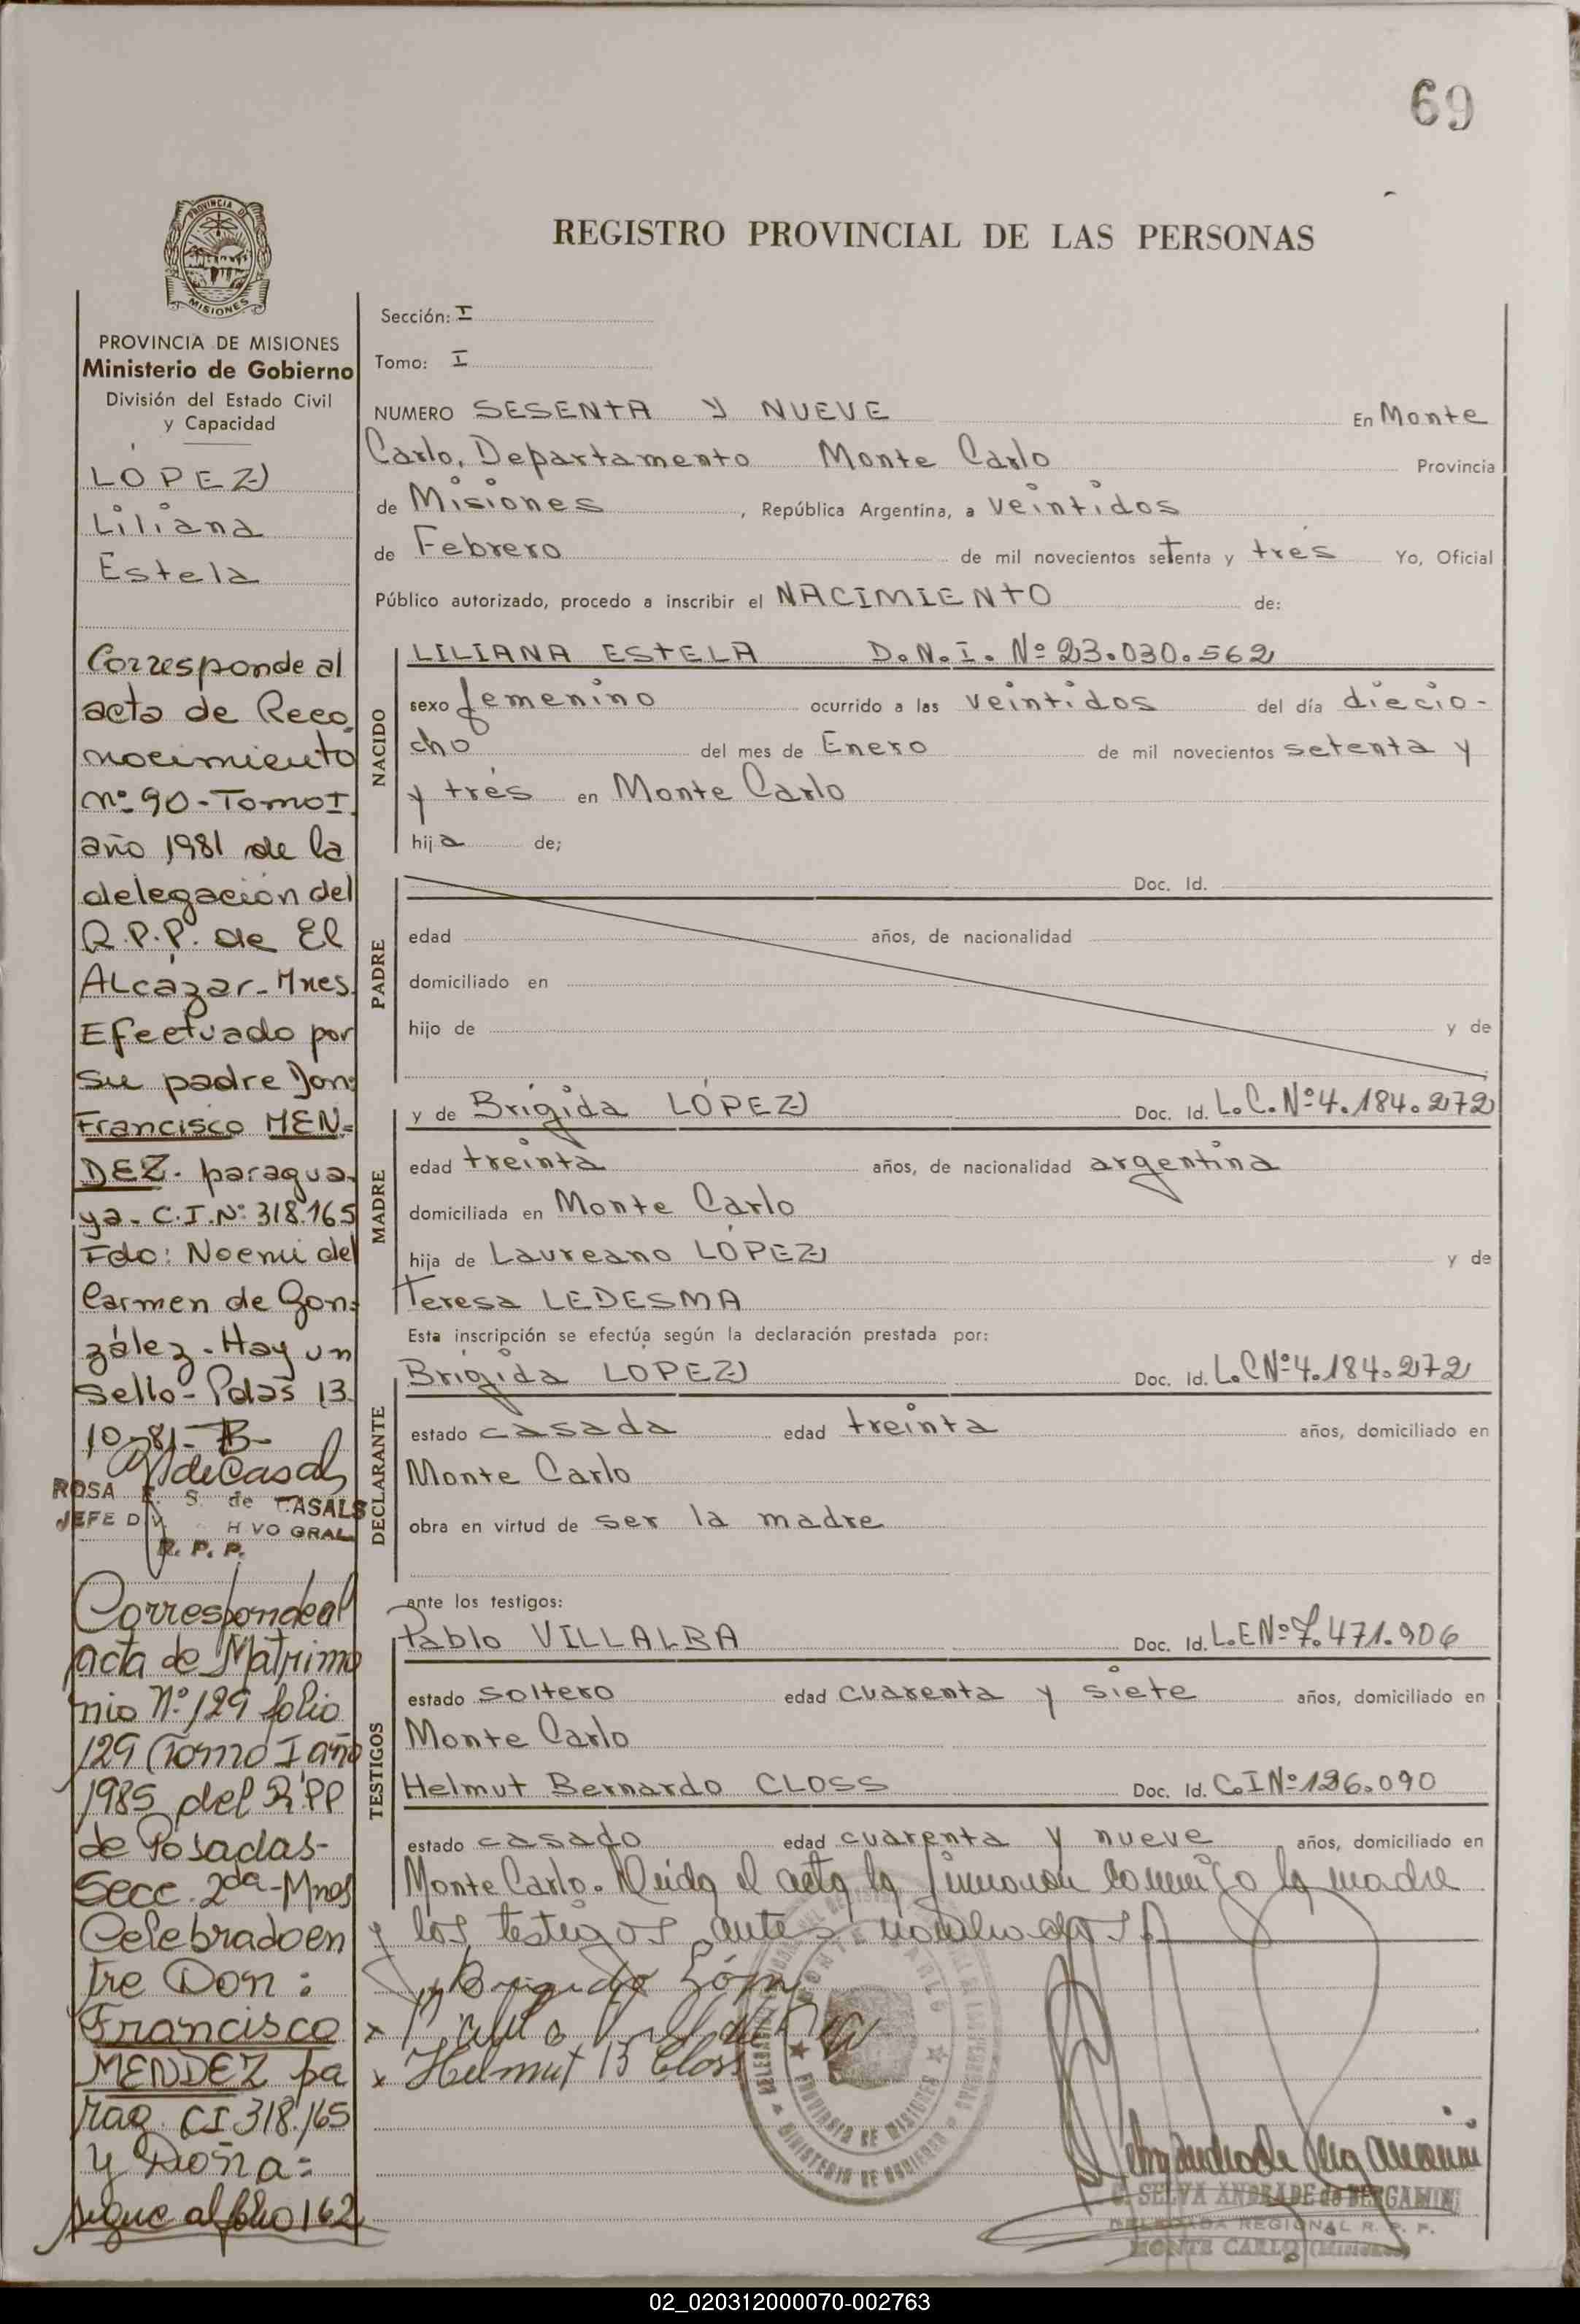 69
REGISTRO PROVINCIAL DE LAS PERSONAS
PROVINCIA DE MISIONES
PROVINCIA DE MISIONES
Ministerio de Gobierno
División del Estado Civil
y Capacidad
LÓPEZ
Liliana
Estela
Corresponde al
acta de Reco
nocimiento
Nº 90 - Tomo I
año 1981 de la
delegación del
R.P.P. de El
Alcázar - Mnes.
Efectuado por
su padre Don:
Francisco MEN=
DEZ - paragua-
ya - C.I.Nº 318.165
Fdo: Noemi del
Carmen de Gon=
zález - Hay un
Sello - Pdas 13-
10-81-
ROSA E. S. de CASALS
JEFE DIV. H VO GRAL.
R. P. P.
Corresponde al
acta de Matrimo
nio Nº 129 folio
129 Tomo I año
1985 del R.PP
de Posadas-
Secc. 2da - Mnes
Celebrado en
tre Don:
Francisco
MENDEZ pa
rag. CI 318.165
y Doña=
sigue al folio 162
Sección: I
Tomo: I
NUMERO SESENTA Y NUEVE En Monte
Carlo, Departamento Monte Carlo Provincia
de Misiones, República Argentina, a veintidos
de Febrero de mil novecientos setenta y tres Yo, Oficial
Público autorizado, procedo a inscribir el NACIMIENTO de:
NACIDO
LILIANA ESTELA D.N.I. Nº 23.030.562
sexo femenino ocurrido a las veintidos del día diecio-
cho del mes de Enero de mil novecientos setenta y
y tres en Monte Carlo
hija de;
PADRE
Doc. Id.
edad años, de nacionalidad
domiciliado en
hijo de y de
MADRE
y de Brígida LÓPEZ Doc. Id. L.C.Nº 4.184.272
edad treinta años, de nacionalidad argentina
domiciliada en Monte Carlo
hija de Laureano LÓPEZ y de
Teresa LEDESMA
Esta inscripción se efectúa según la declaración prestada por:
DECLARANTE
Brígida LÓPEZ Doc. Id. L.C Nº 4.184.272
estado casada edad treinta años, domiciliado en
Monte Carlo
obra en virtud de ser la madre
ante los testigos:
TESTIGOS
Pablo VILLALBA Doc. Id. L.E Nº 7.471.906
estado soltero edad cuarenta y siete años, domiciliado en
Monte Carlo
Helmut Bernardo CLOSS Doc. Id. C.I Nº 196.090
estado casado edad cuarenta y nueve años, domiciliado en
Monte Carlo. Leida el acta la firmaron conmigo la madre
y los testigos antes nombrados
Brigida López
x Pablo Villalba
x Helmut B Closs
MONTE CARLO
PROVINCIA DE MISIONES
MINISTERIO DE GOBIERNO
C. SELVA ANDRADE de BERGAMINI
DELEGADA REGIONAL R. P. P.
MONTE CARLO (Misiones)
02_020312000070-002763